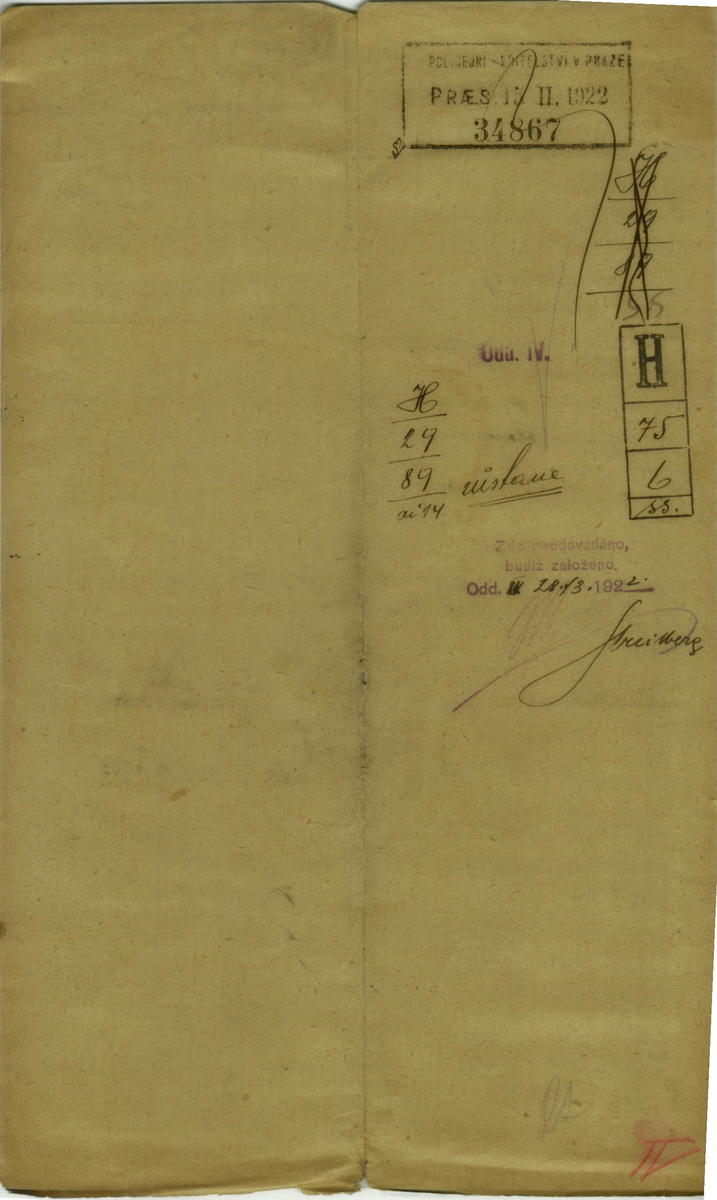 POLICEJNÍ ŘEDITELSTVÍ V PRAZE
PRÆS. 15 II. 1922
34867
H
29
89
55
Odd. IV.
H
75
6
ss.
H
29
89 zůstane
ai 14
Zde neodevzdáno,
budiž založeno.
Odd. IV 28./3. 1922.
IV